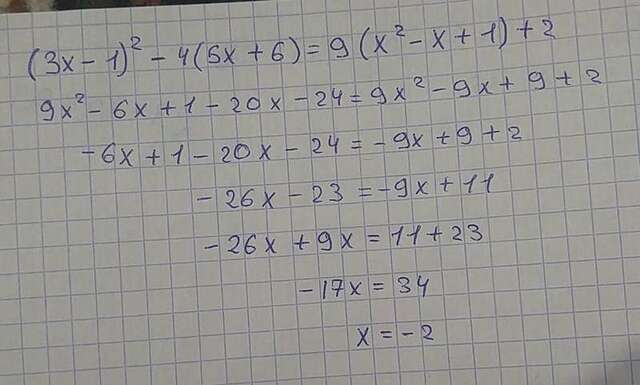 (3x - 1)² - 4(5x + 6) = 9(x² - x + 1) + 2
9x² - 6x + 1 - 20x - 24 = 9x² - 9x + 9 + 2
-6x + 1 - 20x - 24 = -9x + 9 + 2
-26x - 23 = -9x + 11
-26x + 9x = 11 + 23
-17x = 34
x = -2